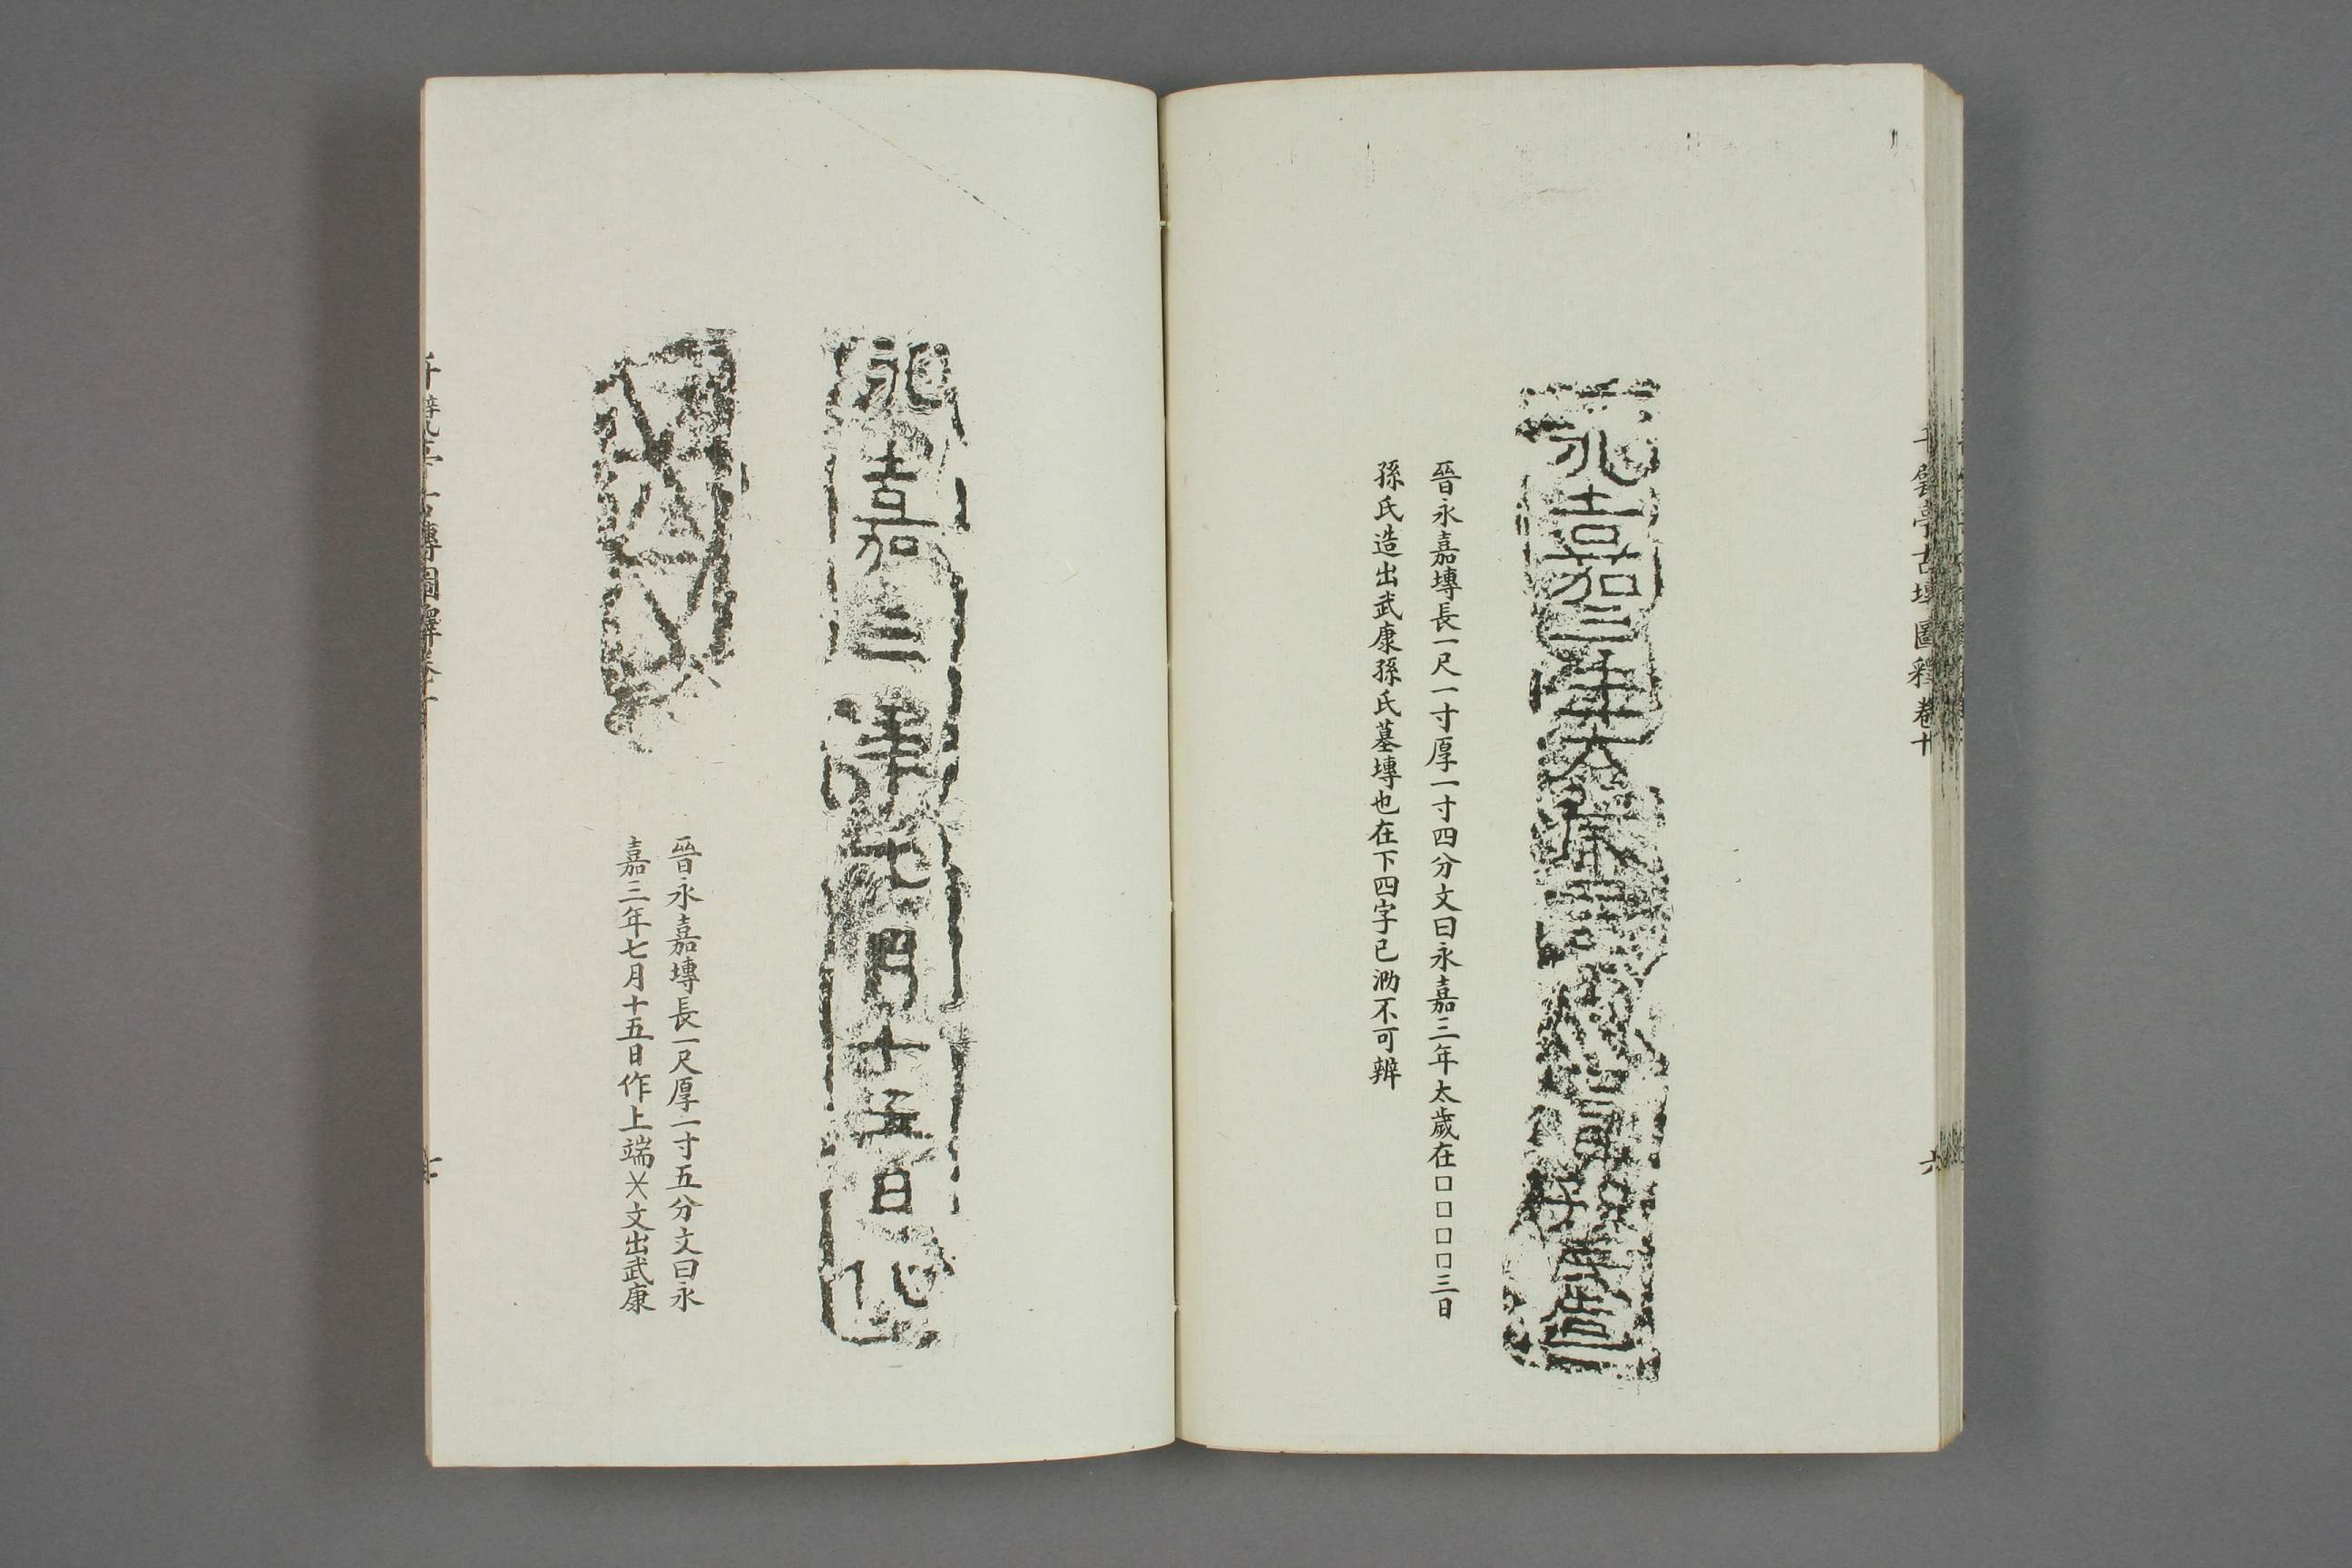 永嘉三年太歲在
日孫氏造
晉永嘉塼長一尺一寸厚一寸四分文曰永嘉三年太歲在□□□□三日
孫氏造出武康孫氏墓塼也在下四字已泐不可辨
永嘉三年七月十五日作
晉永嘉塼長一尺厚一寸五分文曰永
嘉三年七月十五日作上端㐅文出武康